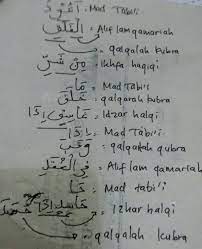 اعوذ : Mad Tabi'i
الفلق : Alif lam qamariah
qalqalah kubra
من شر : Ikhfa haqiqi
ما : Mad Tabi'i
خلق : qalqalah kubra
غاسق اذا : Idzar halqi
اذا : Mad Tabi'i
وقب : qalqalah qubra
في العقد : Alif lam qamariah
حا : Mad tabi'i
حاسد اذا حسد : Izhar halqi
qalqalah kubra